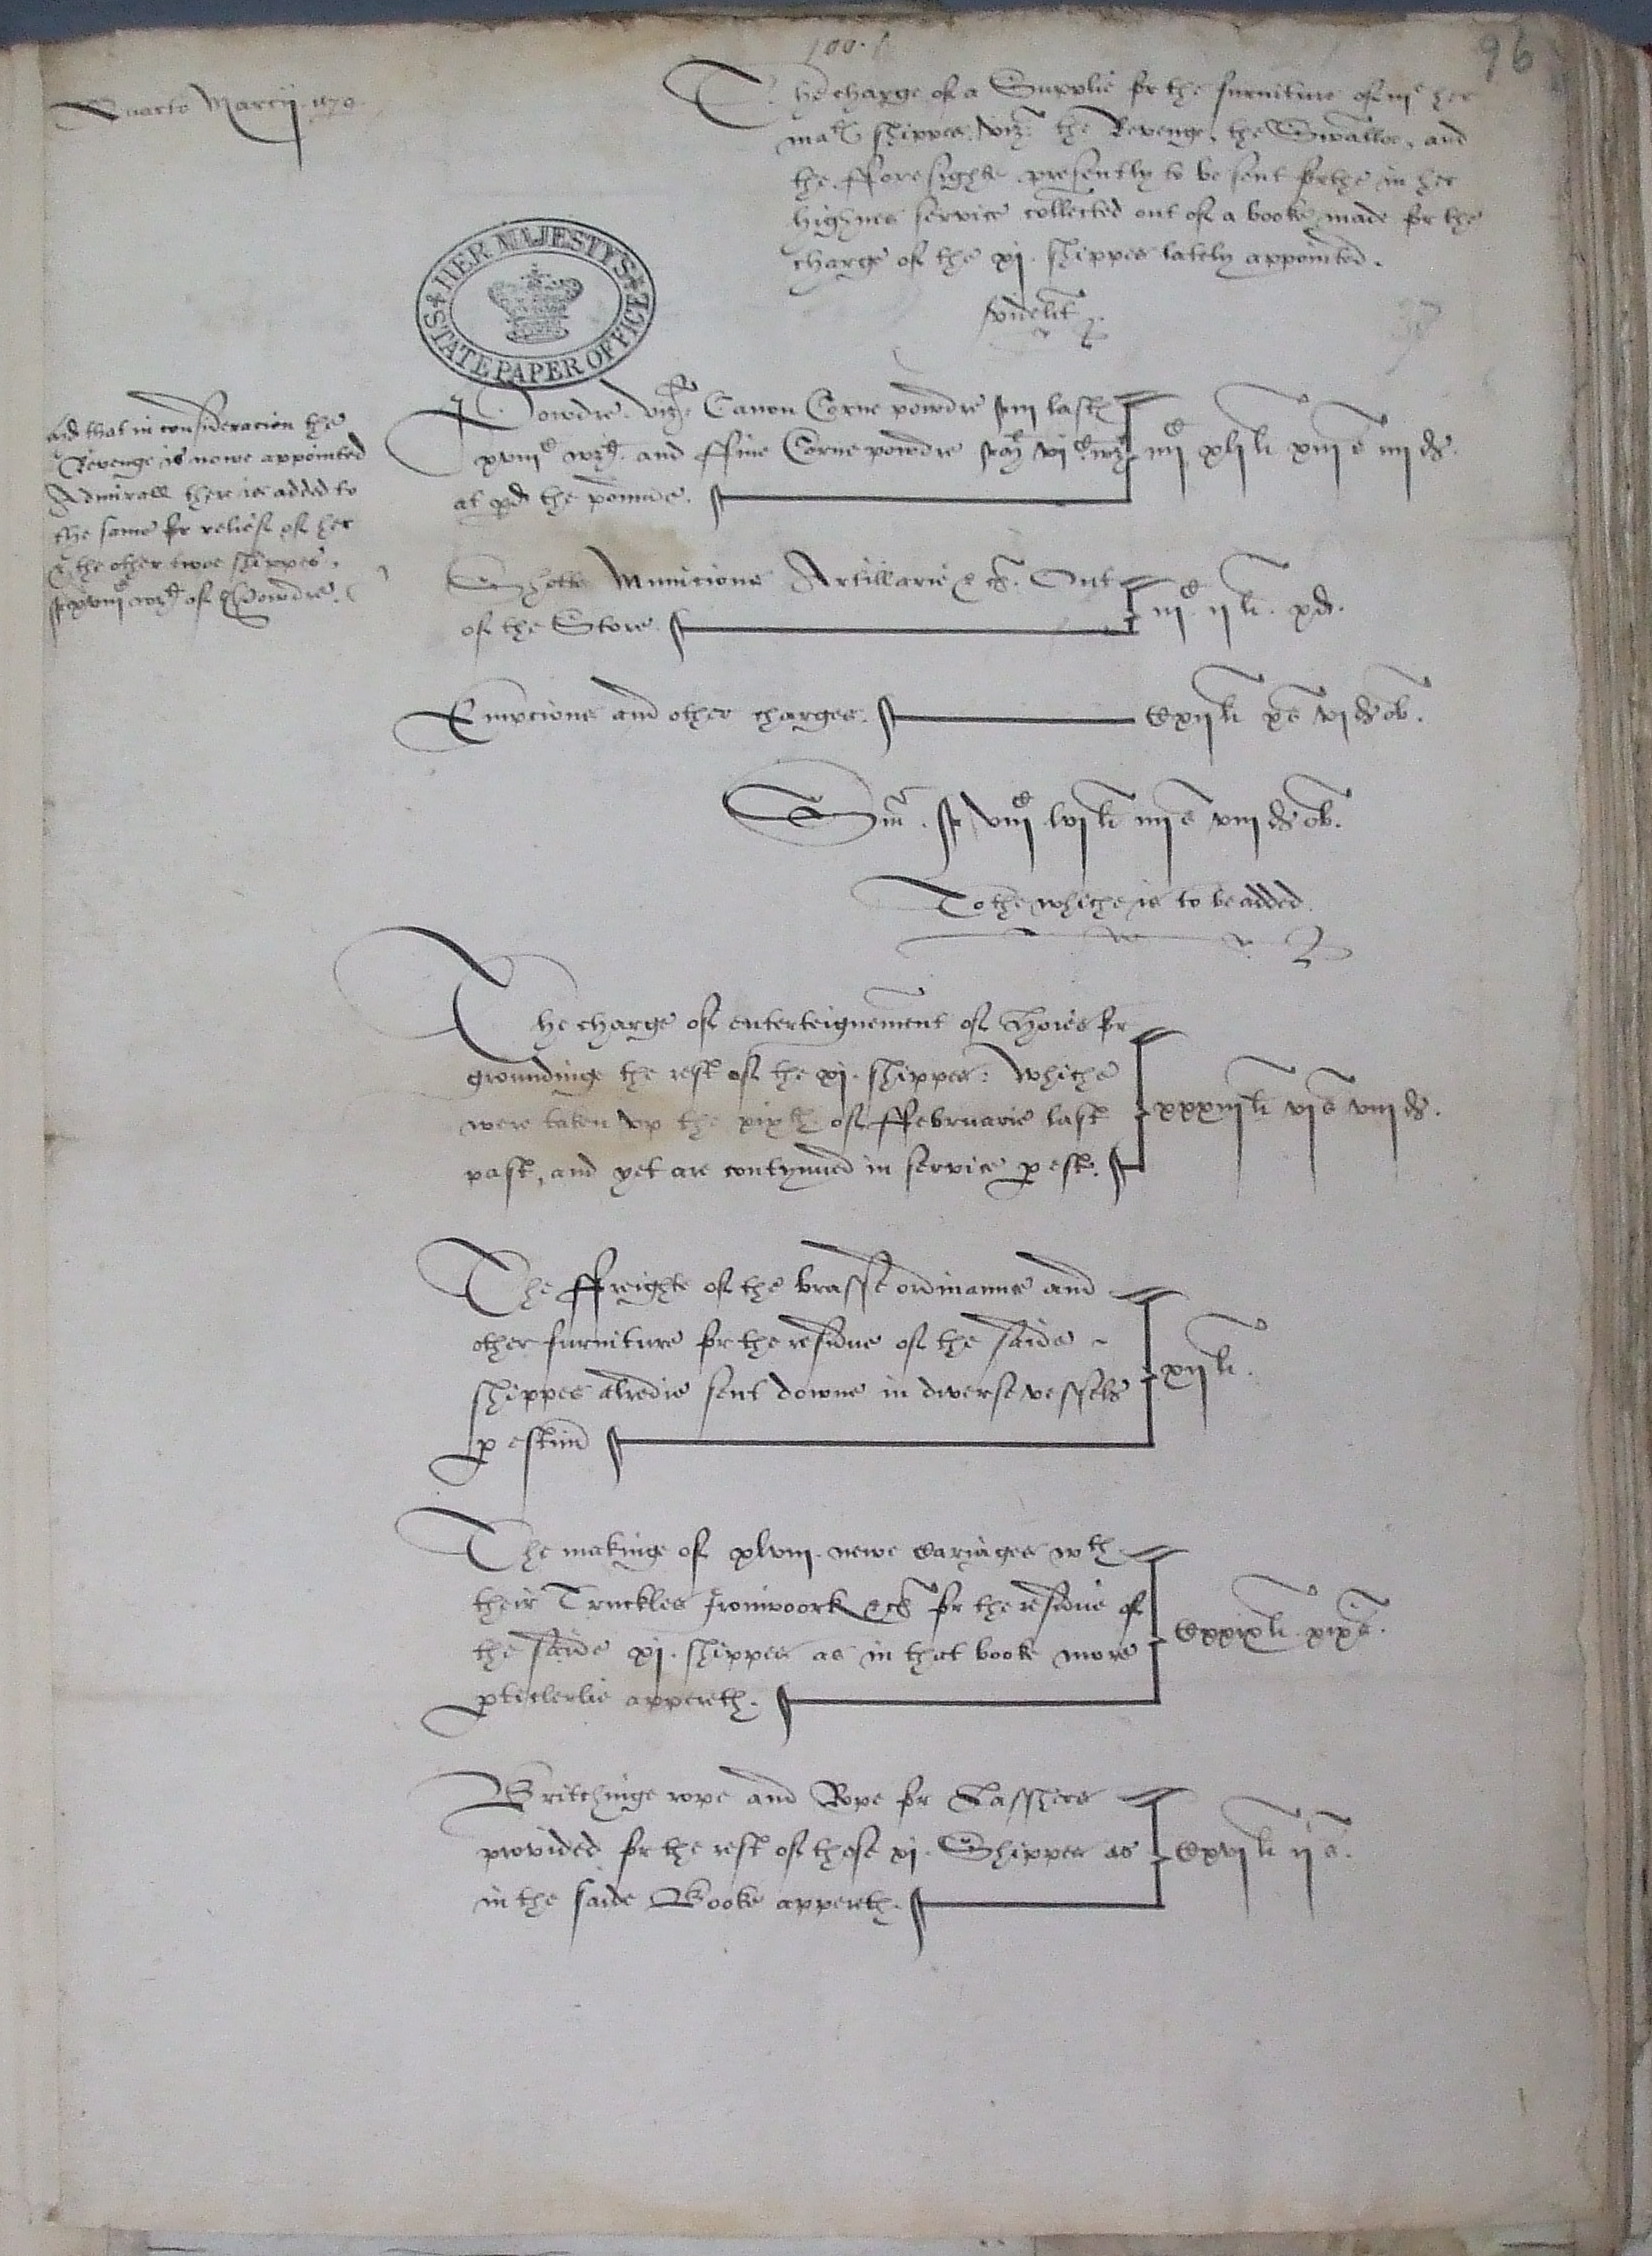 100.
96
Quarto Marcij. 1579.
The charge of a Supplie for the furniture of iij^e her
ma^ts shippes. viz: the Revenge, the Swalloe, and
the fforesighte presently to be sent forthe in her
highnes service collected out of a booke made for the
charge of the xj. shippes lately appointed.
videlt
HER MAJESTY'S
STATE PAPER OFFICE
And that in consideracion the
Revenge is nowe appointed
Admirall there is added to
the same for relief of her
& the other twoe shippes,
xviij^c w^t of Powdre.
Powdre. viz: Canon Corne powdre iij last
xviij^c w^t. and ffine Corne powdre vj^c w^t
at the pounde.
iiij^c xlj li xiij s iiij d.
Shotte Municions Artillarie &c. Out
of the Store.
iij^c ij li. x d.
Empcions and other charges.
Cxij li x s vj d ob.
Sm^a. viij^c lvj li iiij s viij d ob.
To the whiche is to be added.
The charge of enterteignement of Hoies for
groundinge the rest of the xj. shippes: whiche
were taken vp the xix^th of ffebruarie last
past, and yet are contynued in service p est.
xxxiij li vj s viij d.
The ffreighte of the brasse ordinannce and
other furniture for the residue of the saide
shippes alredie sent downe in diverse vessells
p estim
xij li.
The makinge of xlviij. newe Cariages w^th
their Truckles Ironwoork &c for the residue of
the saide xj. shippes as in that booke more
pticlerlie appereth.
Cxxix li. xix s.
Britchinge rope and Rope for Lasshers
provided for the rest of those xj. Shippes as
in the saide Booke appereth.
Cxvj li ij s.